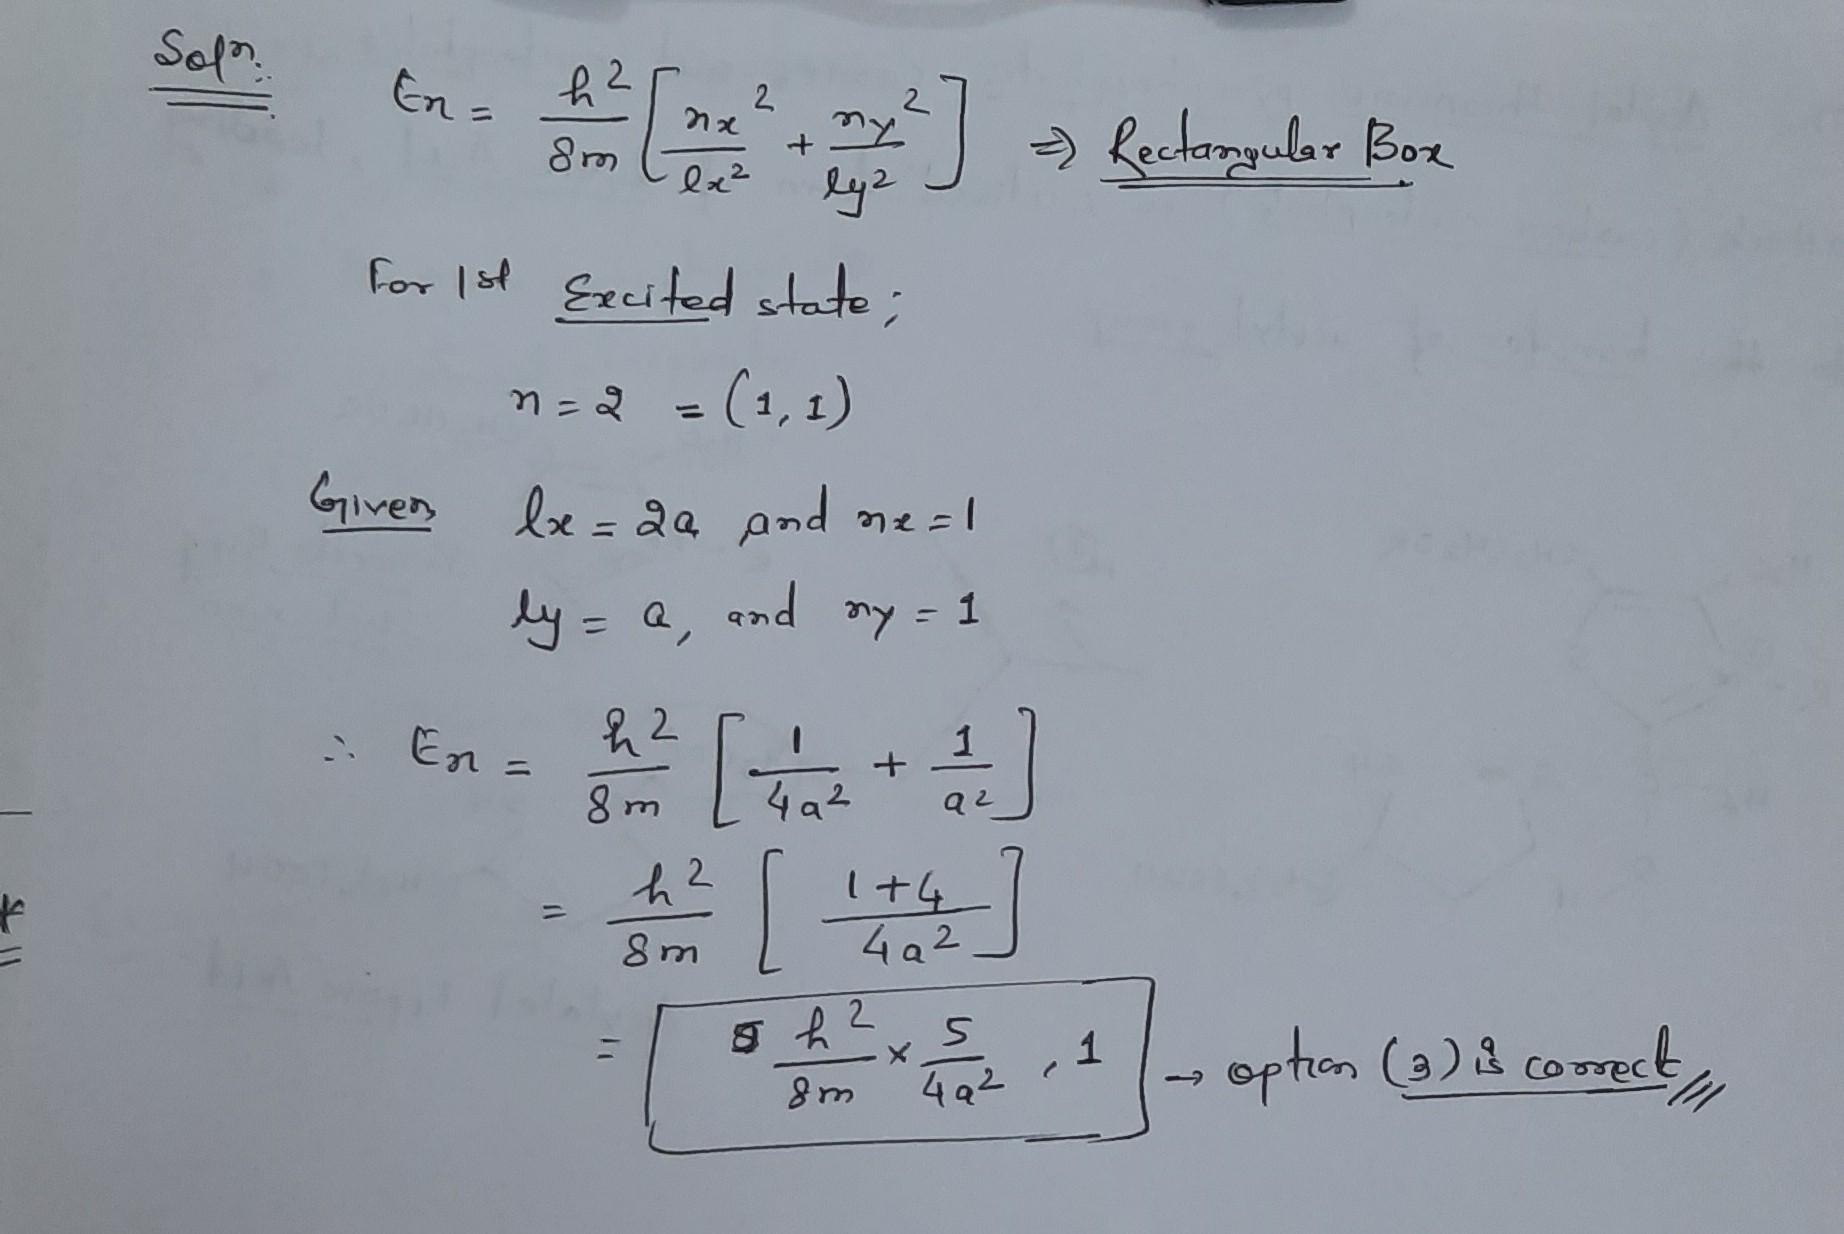 Soln:
En = h²/8m [nx²/lx² + ny²/ly²] ⇒ Rectangular Box
For 1st Excited state;
n = 2 = (1, 1)
Given lx = 2a and nx = 1
ly = a, and ny = 1
∴ En = h²/8m [1/4a² + 1/a²]
= h²/8m [1+4/4a²]
= h²/8m × 5/4a², 1 → option (3) is correct